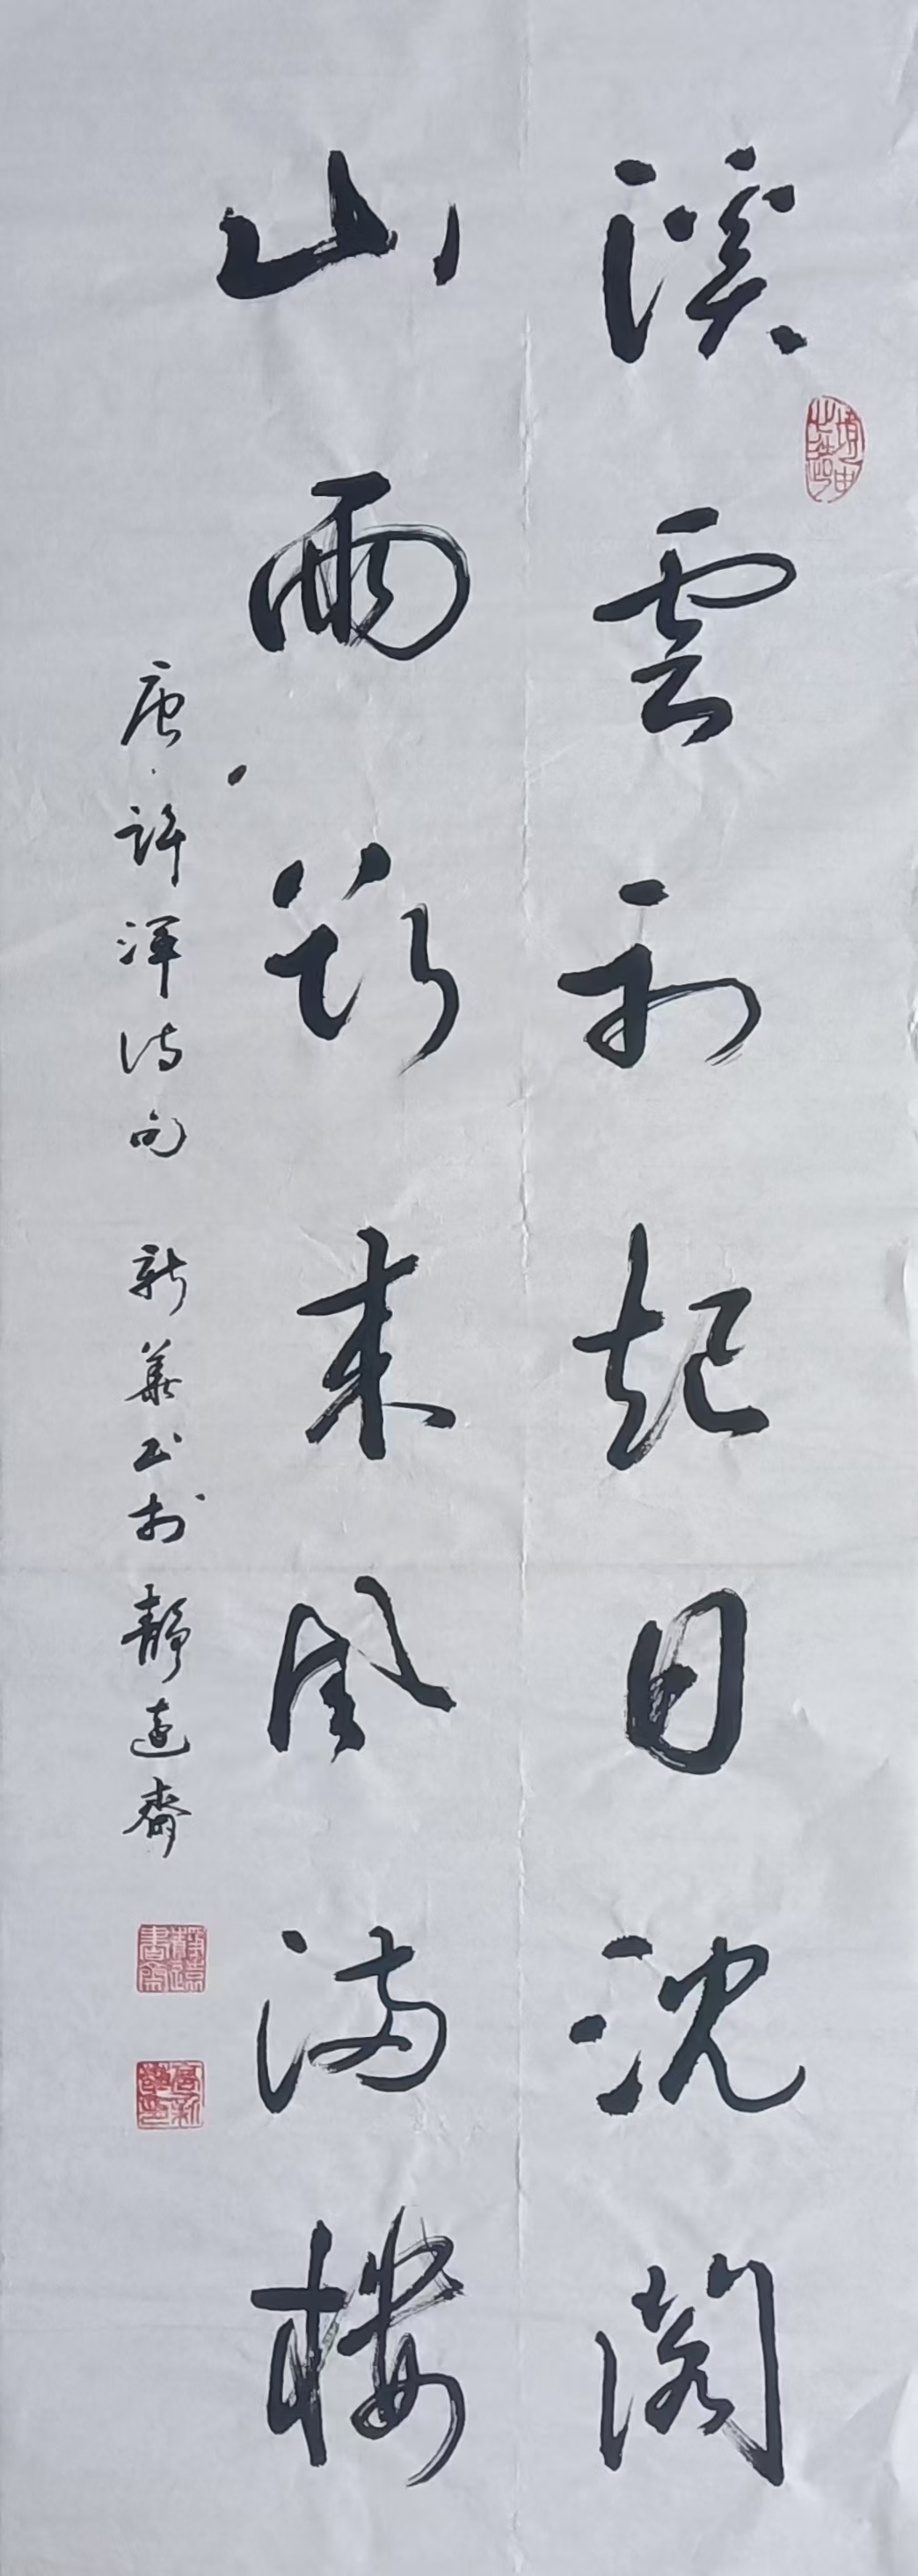 溪雲初起日沈閣
山雨欲来風满樓
唐·許渾诗句 新華书於靜遠齋